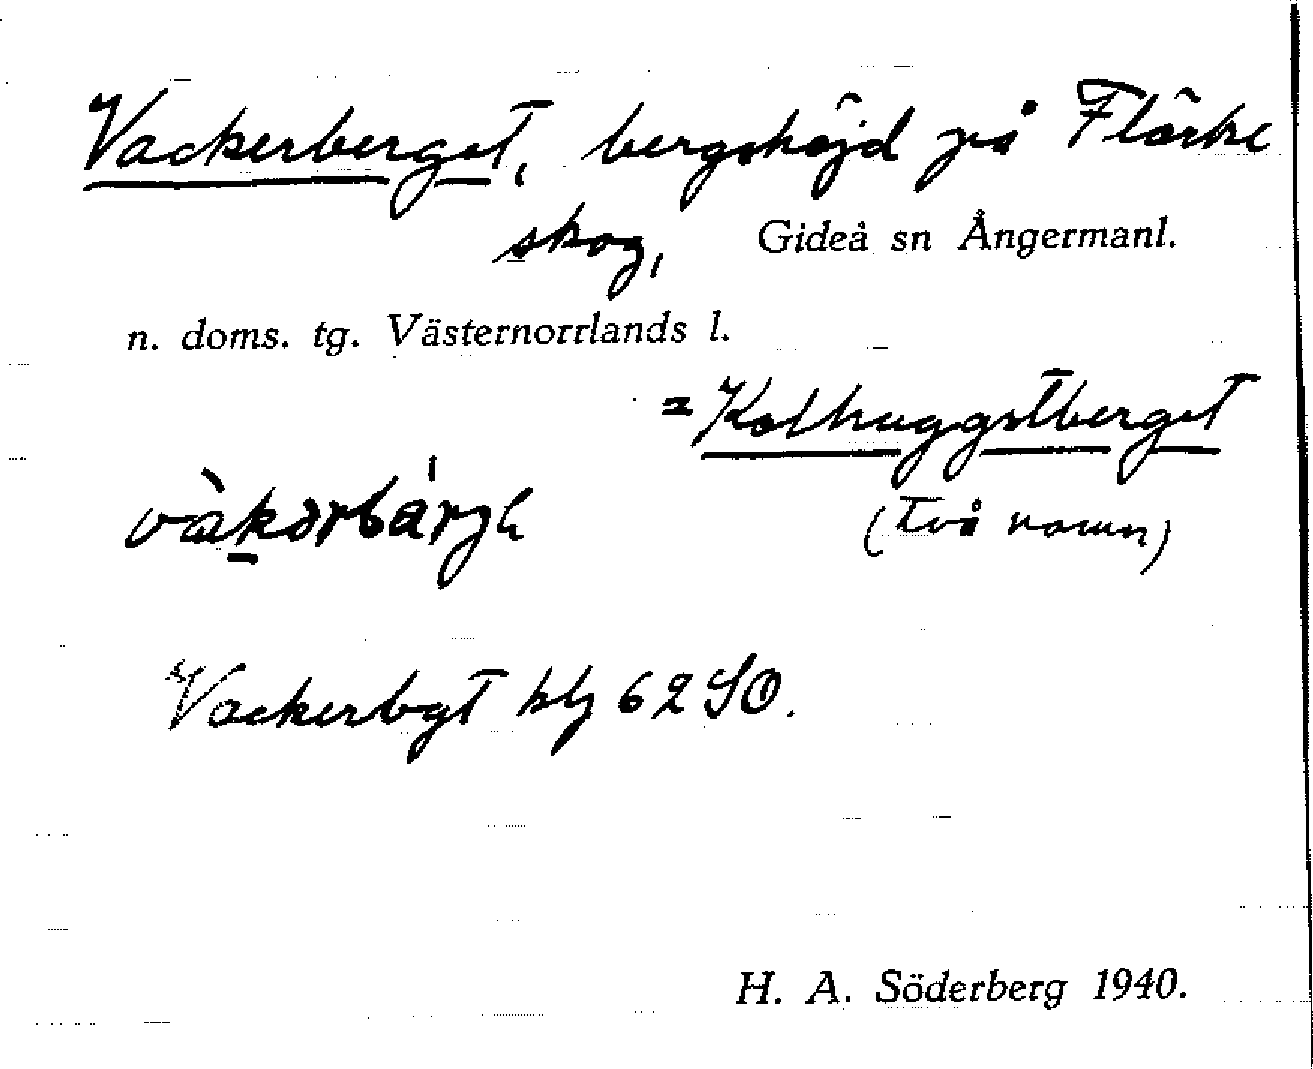 Vackerberget, bergshöjd på Flärke
skog, Gideå sn Ångermanl.
n. doms. tg. Västernorrlands l.
= Kolhuggstberget
vàkərbárjɛ (två namn)
Vackerbgt blj 62 SO.
H. A. Söderberg 1940.